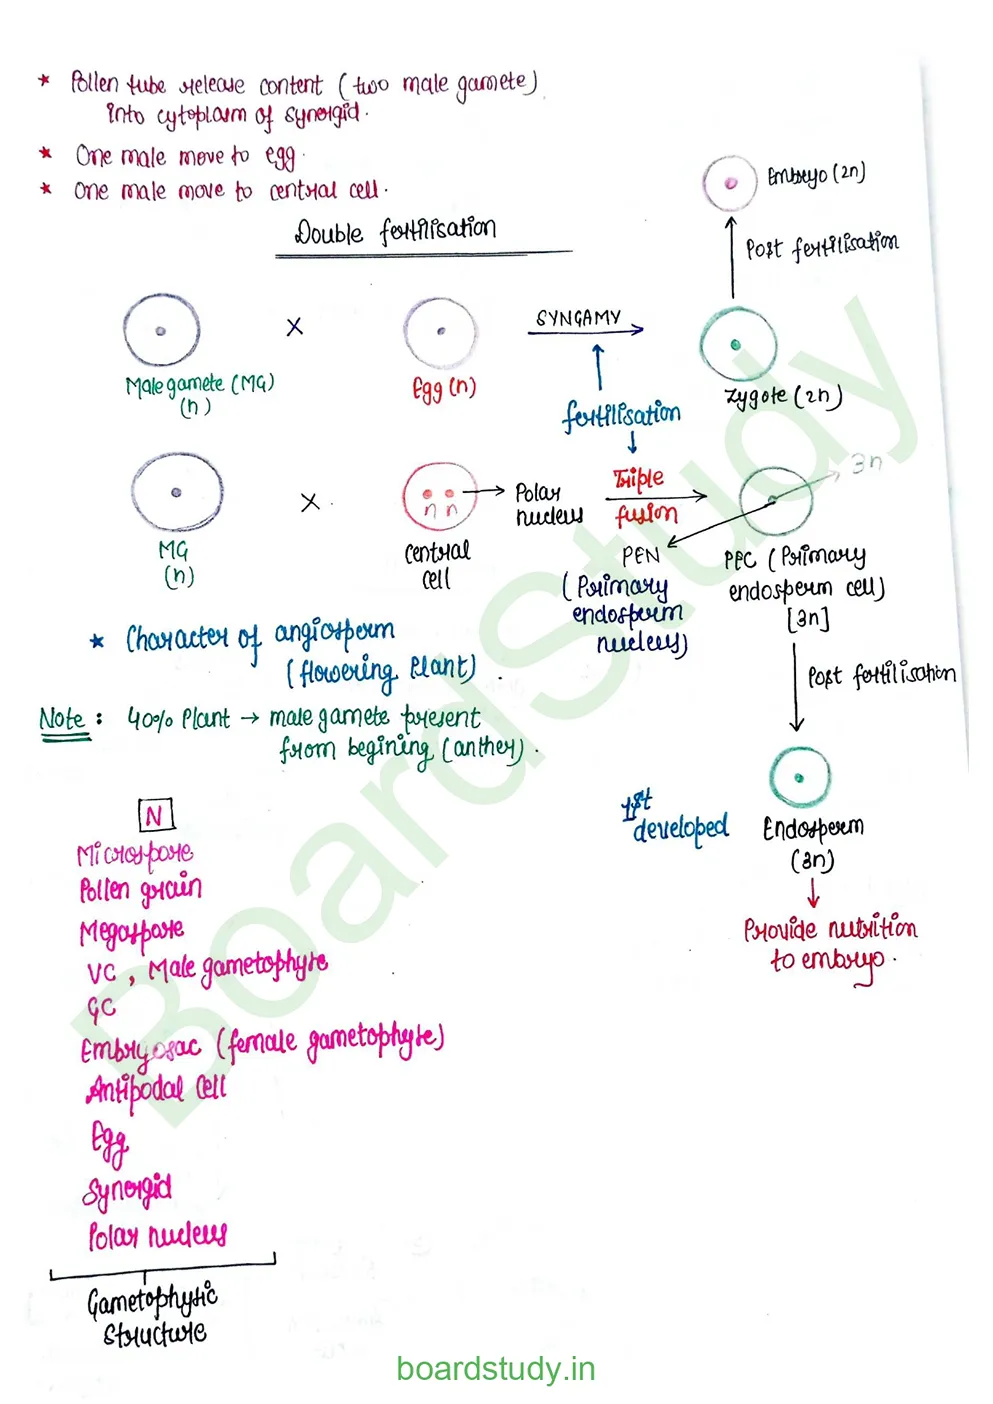 * Pollen tube release content (two male gamete)
into cytoplasm of synergid.
* One male move to egg.
* One male move to central cell.
Double fertilisation
Embryo (2n)
Post fertilisation
Male gamete (MG)
(n)
X
Egg (n)
SYNGAMY
Zygote (2n)
fertilisation
MG
(n)
X
n n
Polar
nucleus
central
cell
Triple
fusion
3n
PEN
(Primary
endosperm
nucleus)
PEC (Primary
endosperm cell)
[3n]
* Character of angiosperm
(flowering Plant).
Post fertilisation
Note: 40% Plant → male gamete present
from begining (anther).
1st
developed
Endosperm
(3n)
Provide nutrition
to embryo.
N
Microspore
Pollen grain
Megaspore
VC, Male gametophyte
GC
Embryosac (female gametophyte)
Antipodal cell
Egg
Synergid
Polar nucleus
Gametophytic
structure
BoardStudy
boardstudy.in